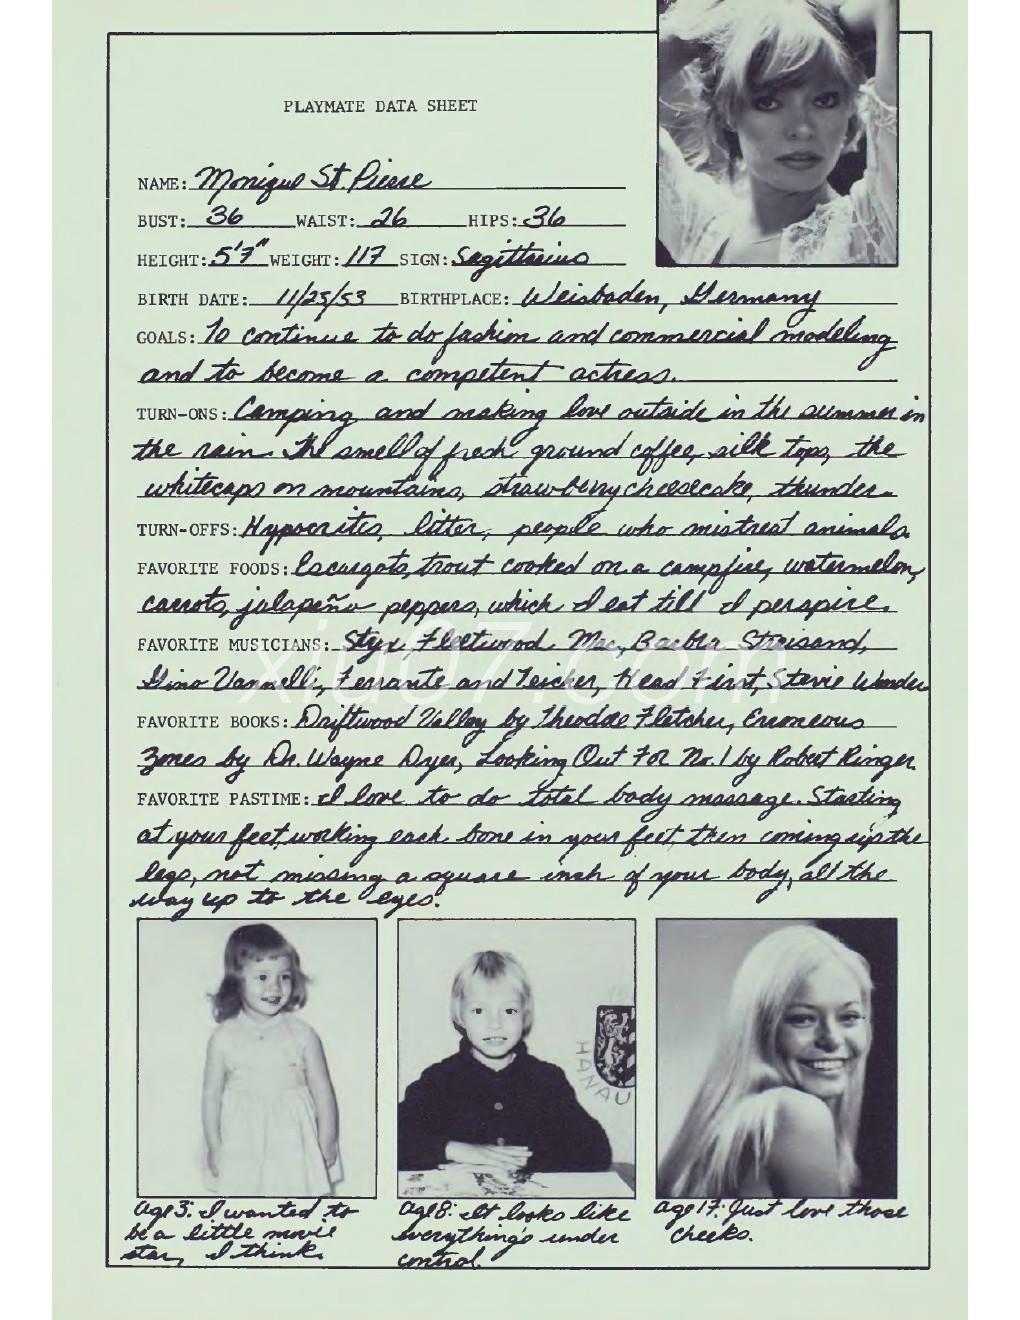 PLAYMATE DATA SHEET
NAME: Monique St. Pierre
BUST: 36 WAIST: 26 HIPS: 36
HEIGHT: 5'7" WEIGHT: 117 SIGN: Sagittarius
BIRTH DATE: 11/25/53 BIRTHPLACE: Weisbaden, Germany
GOALS: To continue to do fashion and commercial modeling
and to become a competent actress.
TURN-ONS: Camping and making love outside in the summer in
the rain. The smell of fresh ground coffee, silk tops, the
whitecaps on mountains, strawberry cheesecake, thunder.
TURN-OFFS: Hypocrites, litter, people who mistreat animals.
FAVORITE FOODS: Escargots, trout cooked on a campfire, watermelon,
carrots, jalapeño peppers, which I eat till I perspire.
FAVORITE MUSICIANS: Styx, Fleetwood Mac, Barbra Streisand,
Gino Vannelli, Ferrante and Teicher, Head First, Stevie Wonder
FAVORITE BOOKS: Driftwood Valley by Theodore Fletcher, Erroneous
Zones by Dr. Wayne Dyer, Looking Out For No. 1 by Robert Ringer
FAVORITE PASTIME: I love to do total body massage. Starting
at your feet, working each bone in your feet, then coming up the
legs, not missing a square inch of your body, all the
way up to the eyes.
xiu07.com
HANAU
age 3: I wanted to
be a little movie
star, I think.
age 8: It looks like
everything's under
control.
age 17: Just love those
cheeks.